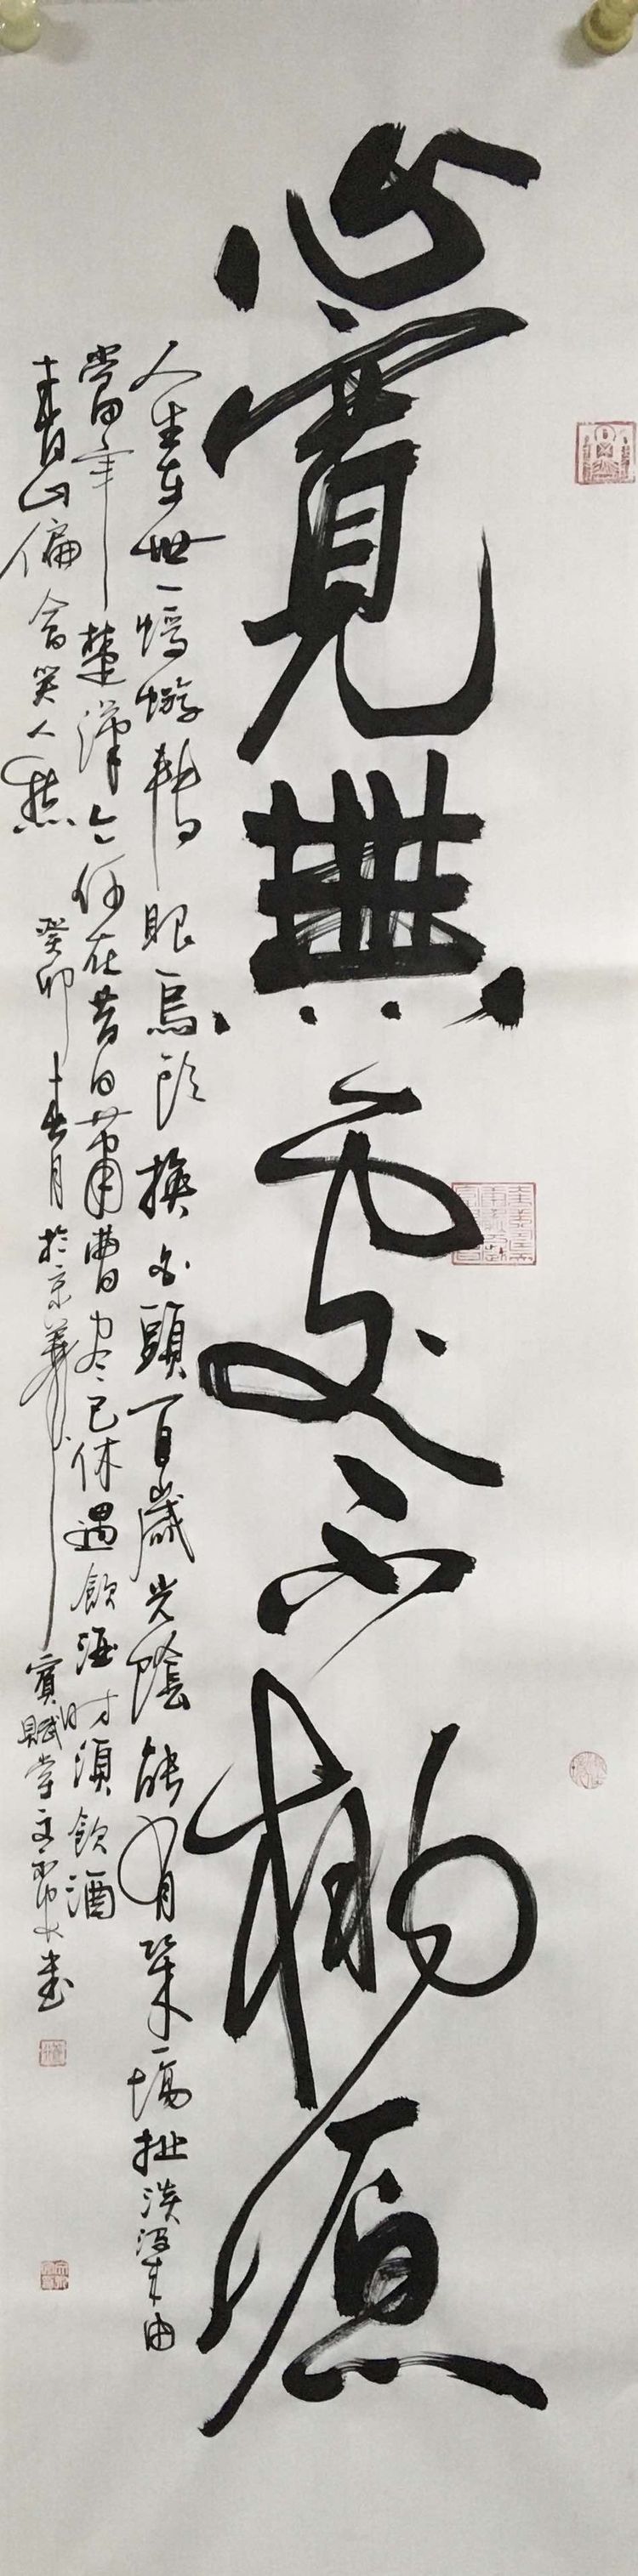 心寬無處不桃源
人生在世一蜉蝣轉眼烏頭換白頭百歲光陰能有幾一場扯淡沒來由
當年楚漢今何在昔日蕭曹盡已休遇飲酒時須飲酒
青山偏會笑人愁 癸卯春月於京華 賦堂 書